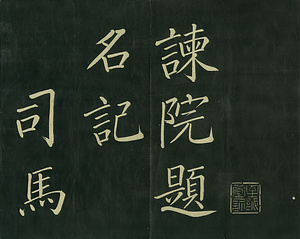 諫院題
名記
司馬